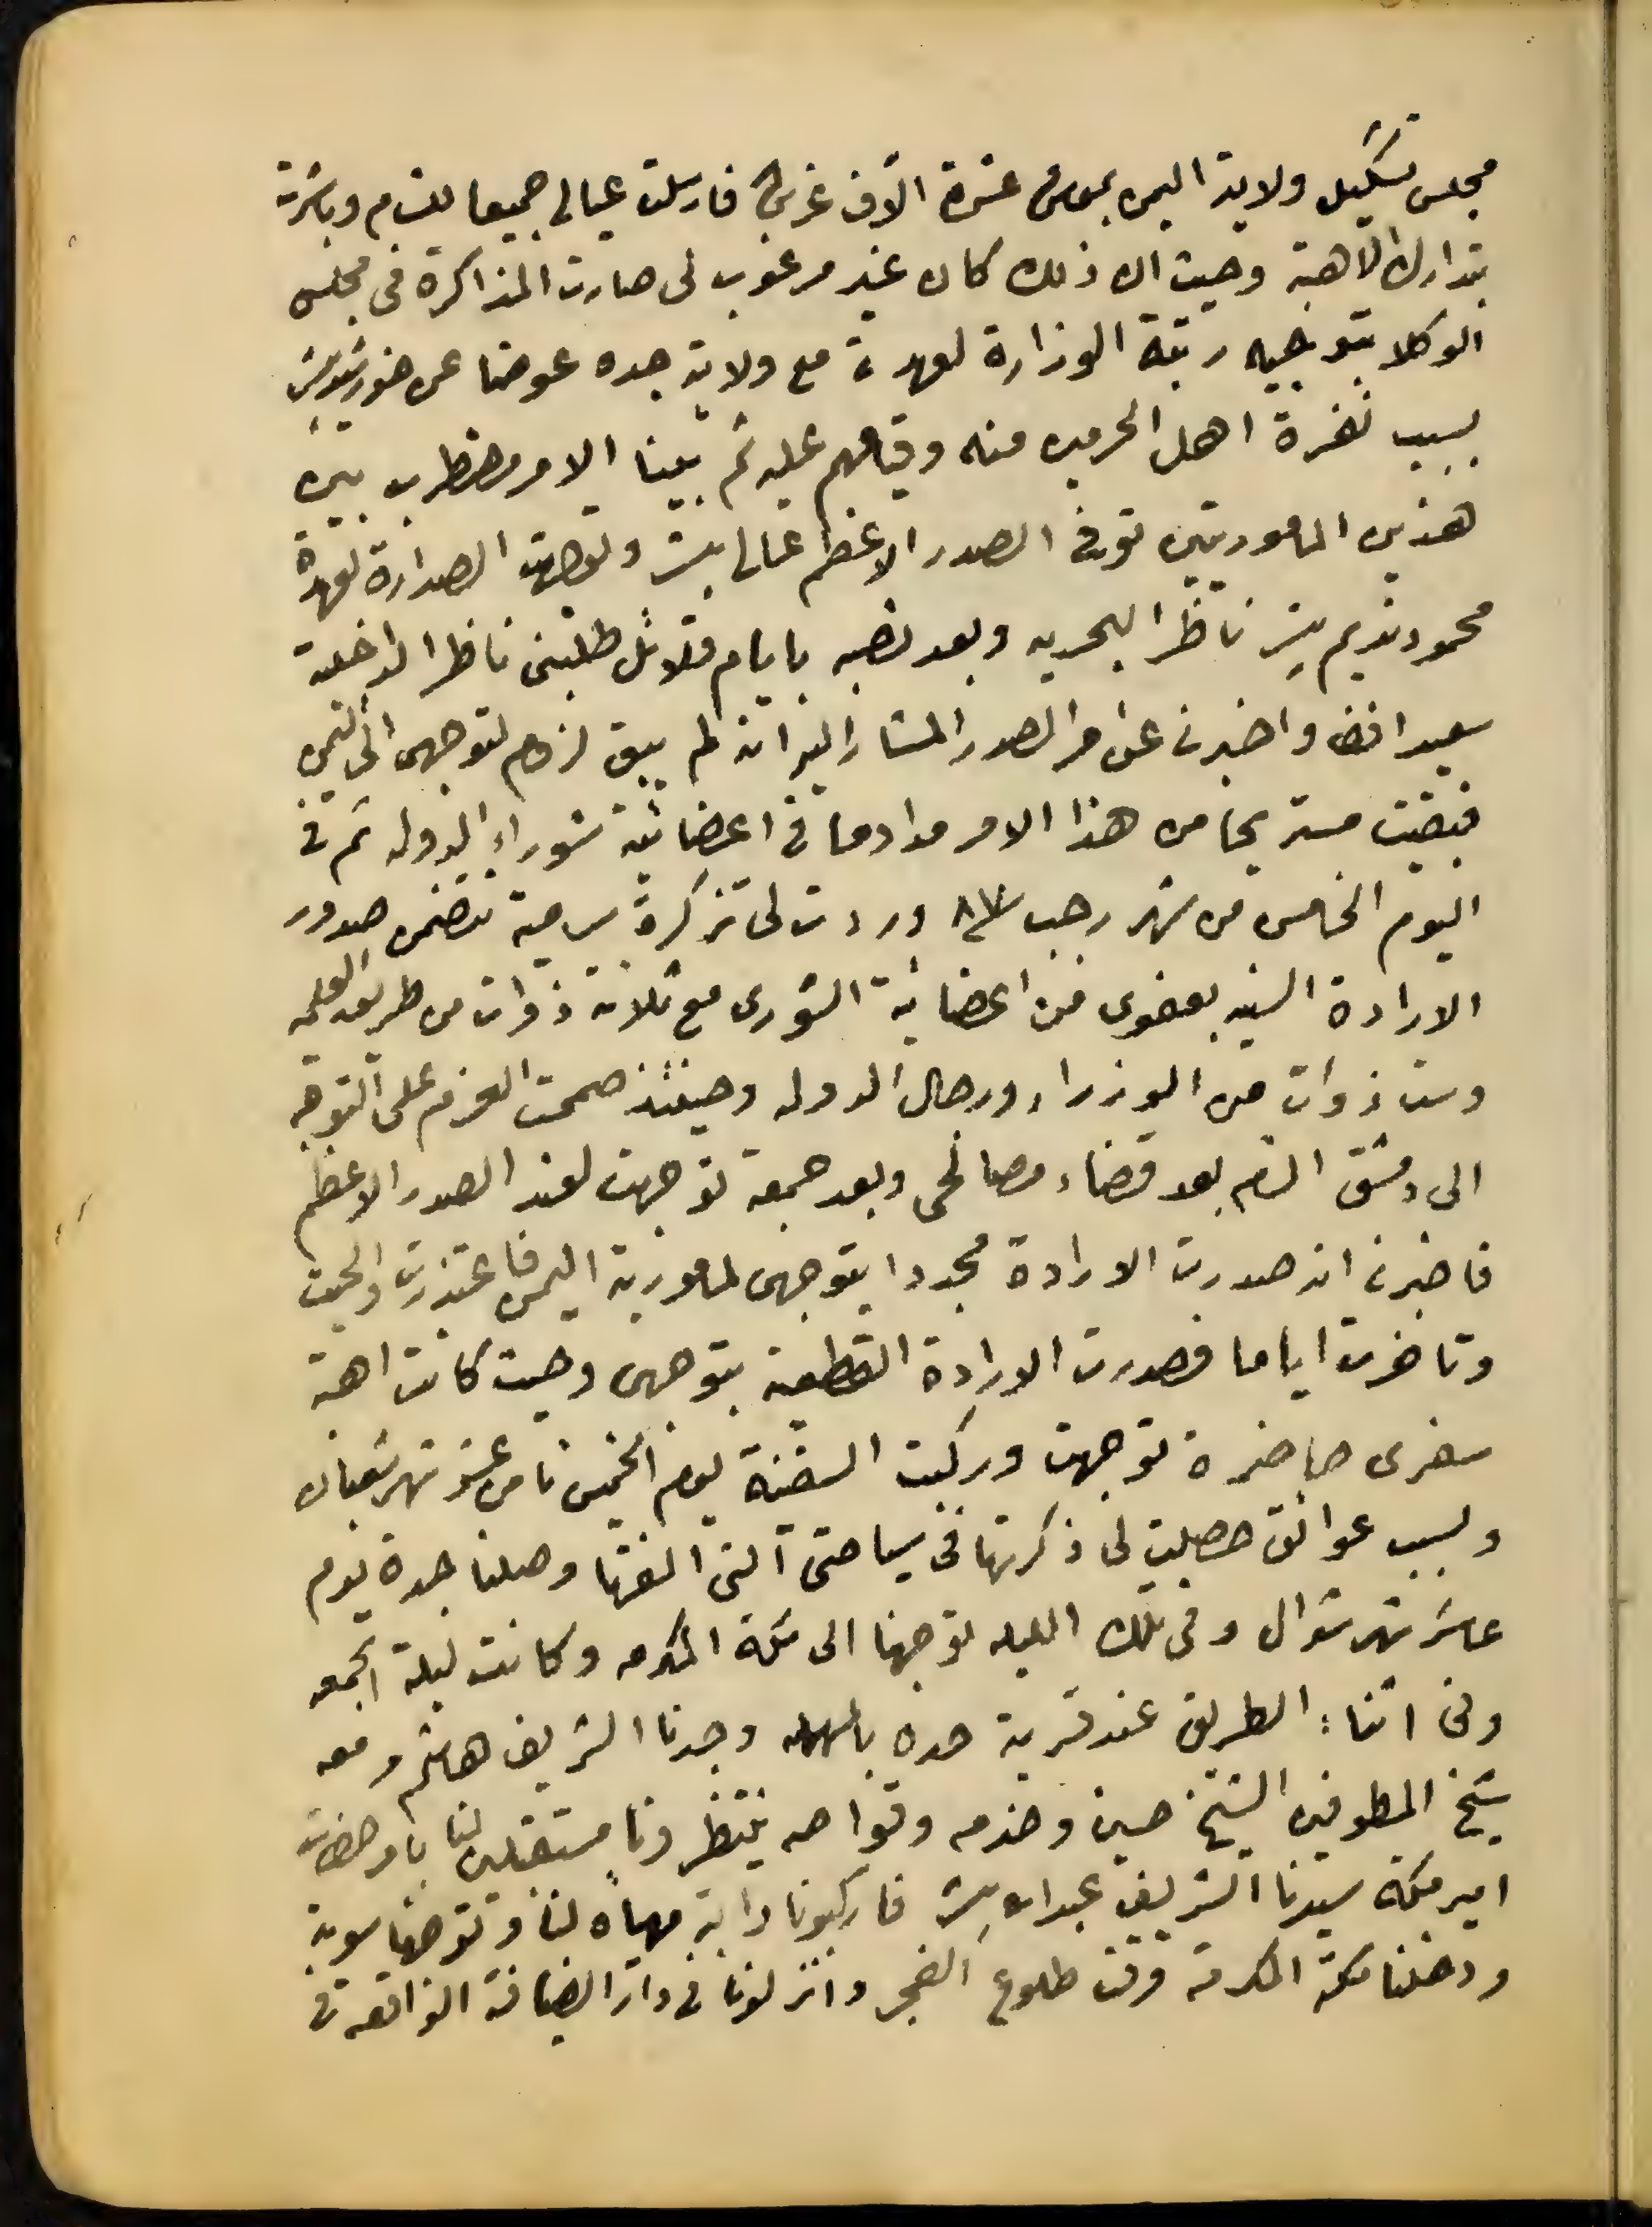 مجلس تشكيل ولاية اليمن بمعاش عشرة آلاف غرش فارسلت عيالي جميعا للشام وباشرت
بتدارك الاهبة وحيث ان ذلك كان غير مرغوب لي صارت المذاكرة في مجلس
الوكلا بتوجيه رتبة الوزارة لعهدتي مع ولاية جده عوضا عن خورشيد باشا
بسبب نفرة اهل الحرمين منه وقيامهم عليه ثم بينا الامر مضطرب بين
هذين المامورتين توفى الصدر الاعظم عالي باشا وتوجهت الصدارة لعهدة
محمود نديم باشا ناظر البحريه وبعد نصبه بايام قلائل طلبني ناظر الداخلية
سعيد افندي واخبرني عن امر الصدر المشار اليه انه لم يبق لزوم لتوجهي الى اليمن
فبقيت مستريحا من هذا الامر مداوما في اعضائية شوراء الدوله ثم في
اليوم الخامس من شهر رجب سنة ٨٨ وردت لي تزكرة سامية تتضمن صدور
الارادة السنيه بعفوي من اعضائية الشورى مع ثلاثة ذوات من طريق العلميه
وست ذوات من الوزراء ورجال الدوله وحينئذ صممت العزم على التوجه
الى دمشق الشام بعد قضاء مصالحي وبعد جمعة توجهت لعند الصدر الاعظم
فاخبرني انه صدرت الارادة مجددا بتوجهي لمامورية اليمن فاعتذرت والحيت
وتاخرت اياما فصدرت الارادة القطعية بتوجهي وحيث كانت اهبة
سفري حاضرة توجهت وركبت السفينة يوم الخميس ثامن عشر شهر شعبان
وبسبب عوائق حصلت لي ذكرتها في سياحتي التي الفتها وصلنا جدة يوم
عاشر شهر شوال وفي تلك الليله توجهنا الى مكة المكرمه وكانت ليلة الجمعه
وفي اثناء الطريق عند قرية حده بالمهمله وجدنا الشريف هاشم ومعه
شيخ المطوفين الشيخ حسين وخدمه وقواصه ينتظرونا مستقبلين لنا بامر حضرت
امير مكة سيدنا الشريف عبدالله باشا فاركبونا دابة مهيأه لنا وتوجهنا سوية
ودخلنا مكة المكرمة وقت طلوع الفجر وانزلونا في دار الضيافة الواقعه في